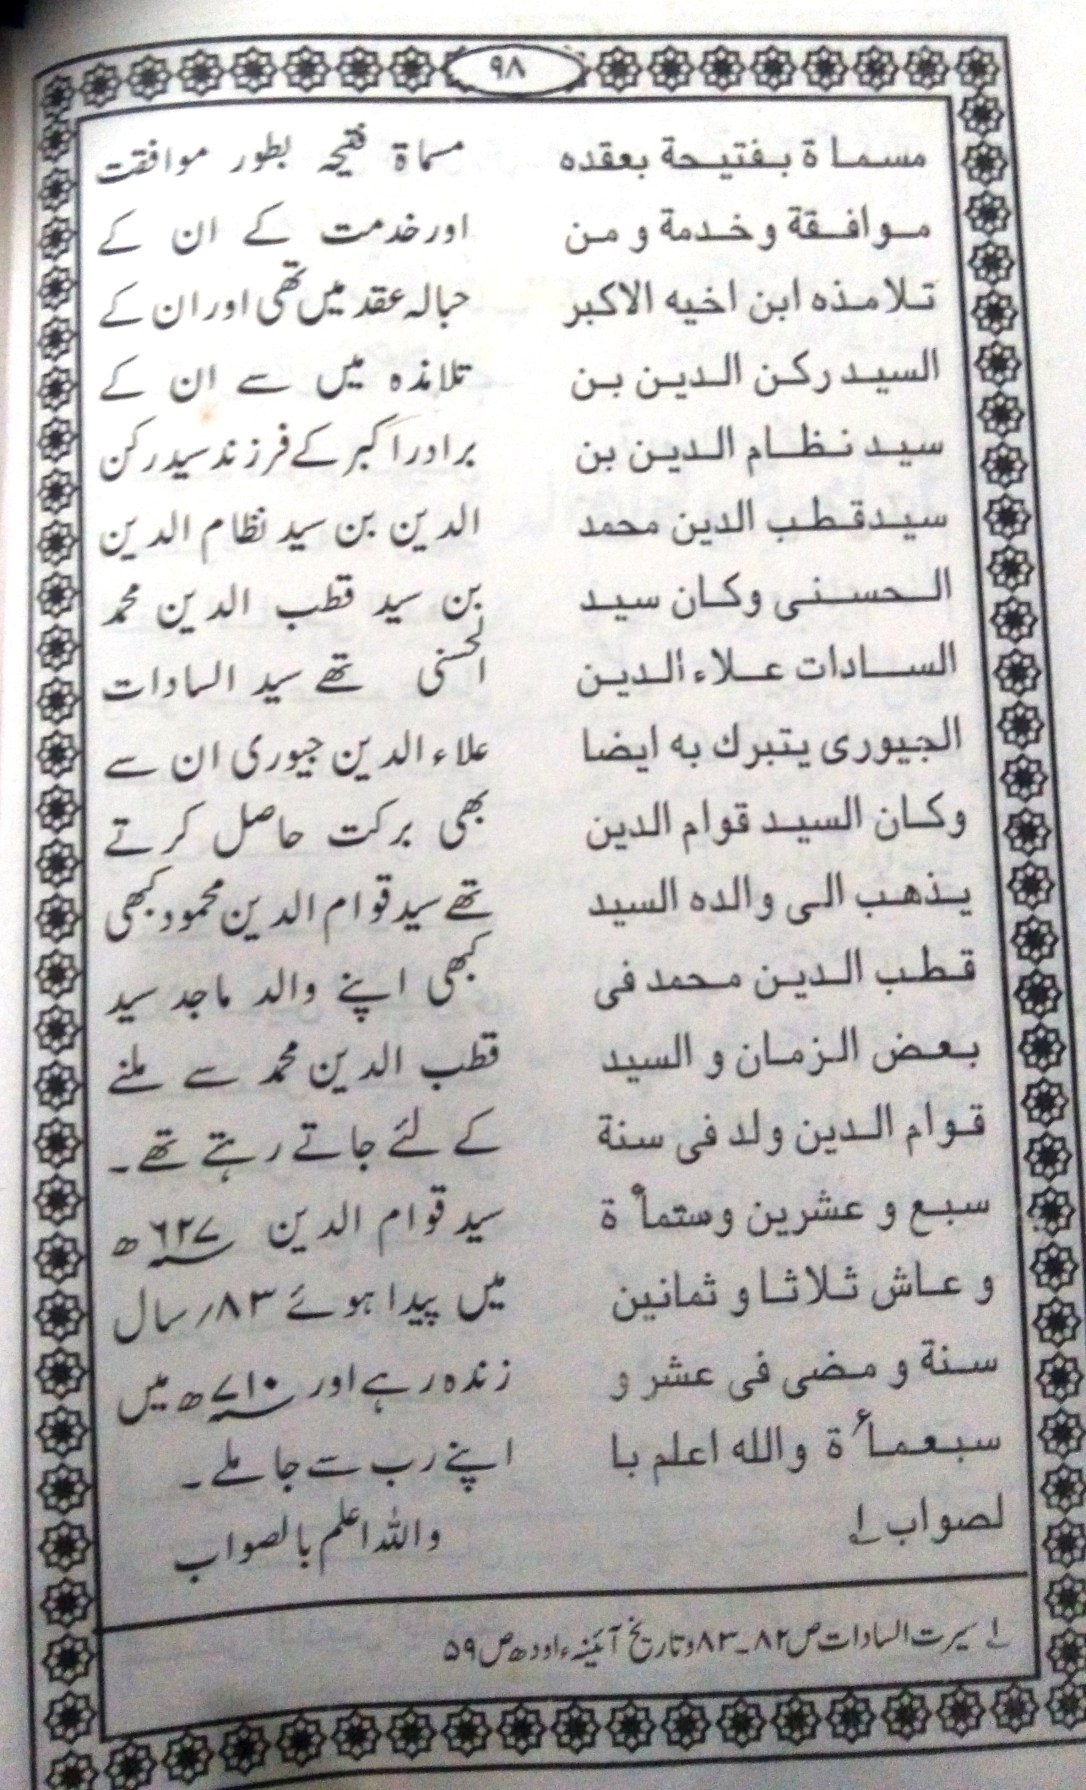 ۹۸
مسماة بفتيحة بعقده
موافقة و خدمة و من
تلامذه ابن اخيه الاكبر
السيد ركن الدين بن
سيد نظام الدين بن
سيد قطب الدين محمد
الحسنى وكان سيد
السادات علاء الدين
الجيورى يتبرك به ايضا
وكان السيد قوام الدين
يذهب الى والده السيد
قطب الدين محمد فى
بعض الزمان و السيد
قوام الدين ولد فى سنة
سبع و عشرين وستمأة
و عاش ثلاثا و ثمانين
سنة و مضى فى عشر و
سبعمأة والله اعلم با
لصواب لے
مسماۃ فتیحہ بطور موافقت
اور خدمت کے ان کے
حبالہ عقد میں تھی اور ان کے
تلامذہ میں سے ان کے
برادر اکبر کے فرزند سید رکن
الدین بن سید نظام الدین
بن سید قطب الدین محمد
الحسنی تھے سید السادات
علاء الدین جیوری ان سے
بھی برکت حاصل کرتے
تھے سید قوام الدین محمود کبھی
کبھی اپنے والد ماجد سید
قطب الدین محمد سے ملنے
کے لئے جاتے رہتے تھے۔
سید قوام الدین ۶۲۷ھ
میں پیدا ہوئے ۸۳؍ سال
زندہ رہے اور ۷۱۰ھ میں
اپنے رب سے جا ملے۔
واللہ اعلم بالصواب
لے سیرت السادات ص ۸۲۔۸۳ و تاریخ آئینہء اودھ ص ۵۹